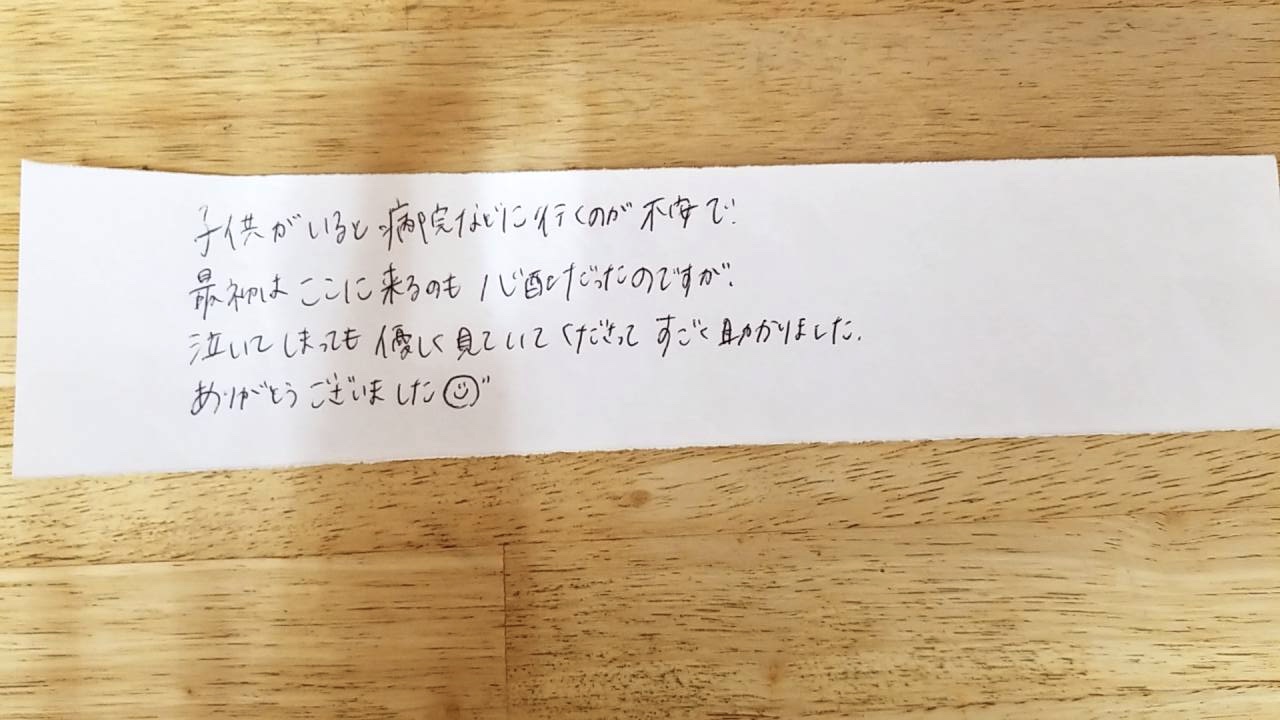 子供がいると病院などに行くのが不安で、
最初はここに来るのも心配だったのですが、
泣いてしまっても優しく見ていてくださってすごく助かりました。
ありがとうございました☺